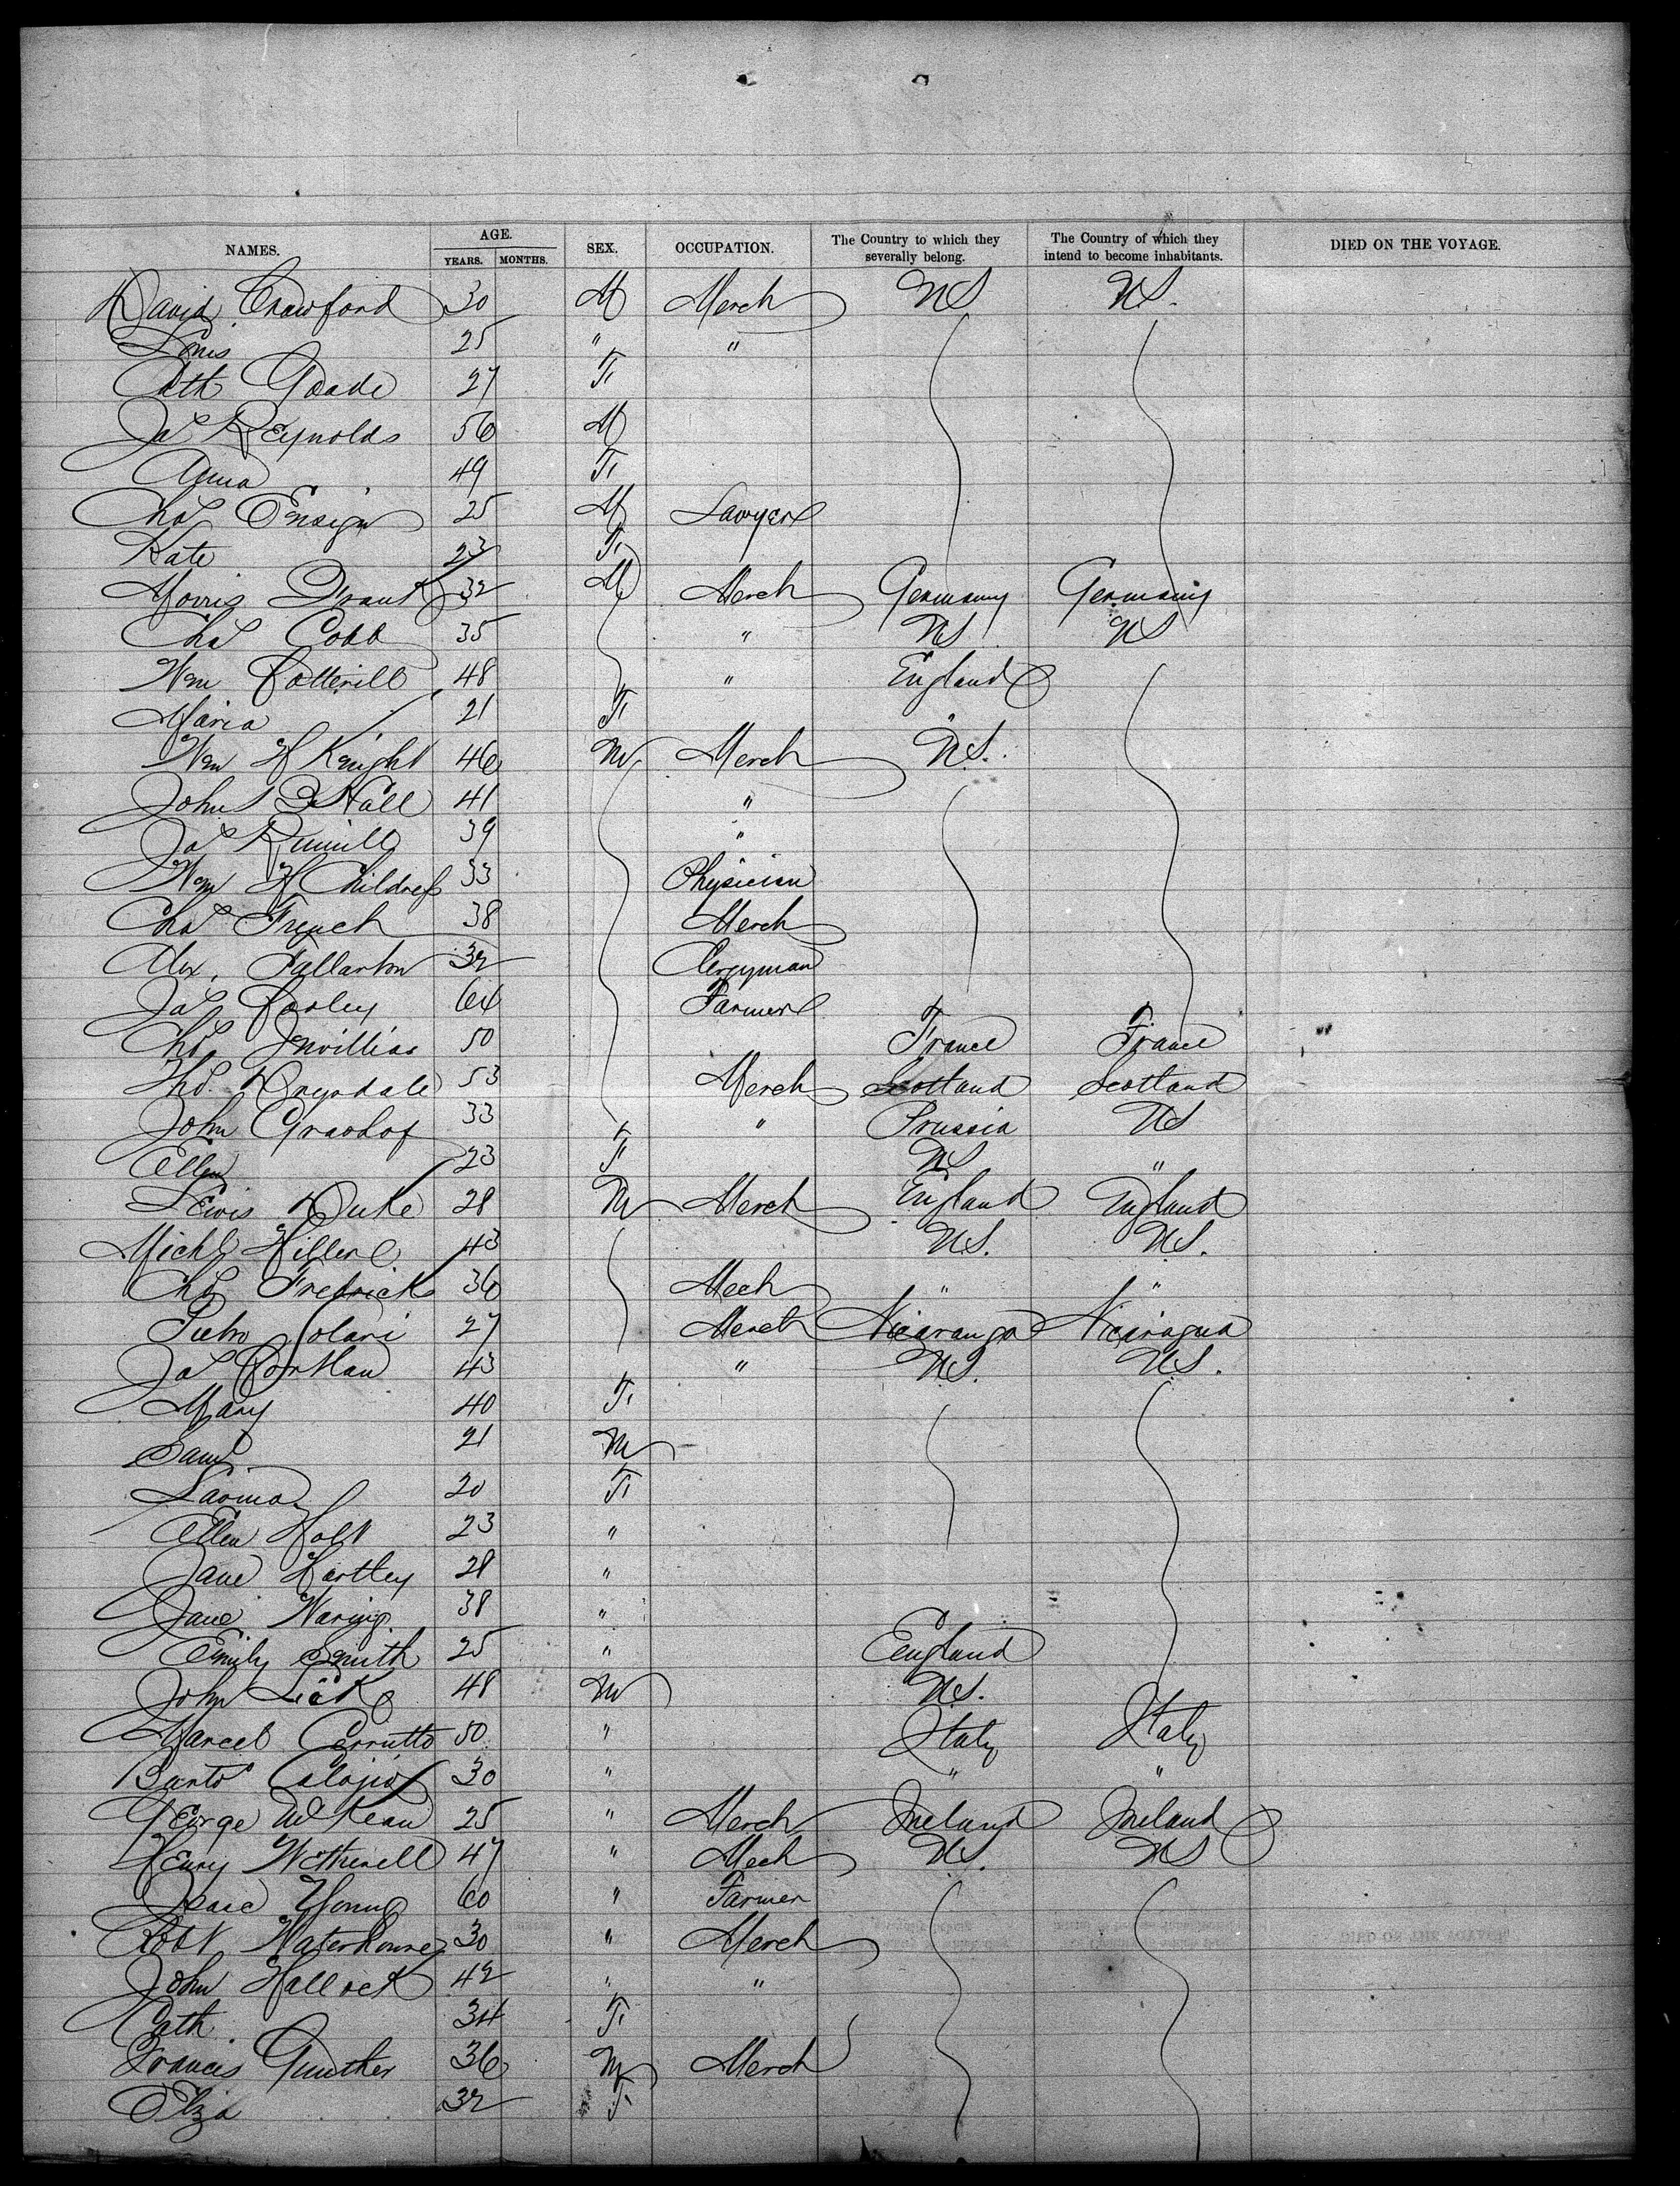 NAMES. AGE. SEX. OCCUPATION. The Country to which they severally belong. The Country of which they intend to become inhabitants. DIED ON THE VOYAGE.
YEARS. MONTHS.
David Crawford 30 M Merch US US.
Louis 25 " "
Cath Goade 27 F
Jas Reynolds 56 M
Anna 49 F
Chas Ensign 25 M Lawyer
Kate 23 F
Morris Frank 32 M Merch Germany Germany
Chas Cobb 35 " US US
Wm Cotterill 48 " England
Maria 21 F
Wm H Knight 46 M Merch U.S.
John S Hall 41 "
Jas 39 "
Wm H Childress 33 Physician
Chas French 38 Merch
Alex. Fallarton 32 Clergyman
Jas Cooley 64 Farmer
Chs. 50 France France
Thos. Drysdale 53 Merch Scotland Scotland
John Grashof 33 " Prussia US
Ellen 23 F US "
Lewis Duke 28 M Merch England England
Michl Hiller 43 U.S. U.S.
Chs Fredricks 36 Mech " "
Pietro Solari 27 Merch Nicaranga Nicaragua
Jas 43 " US. U.S.
Mary 40 F
Saml 21 M
20 F
Ellen Holt 23 "
Jane Hartley 28 "
Jane Waring 38 "
Emily Smith 25 " England
John Lick 48 M U.S.
Marcel Cerrutto 50 " Italy Italy
Barto 30 " " "
George McKean 25 " Merch Ireland Ireland
Henry Wetherell 47 " Mech U.S. US
Isaac Young 60 " Farmer
Robt Waterhouse 30 " Merch
John Hallock 42 " "
Cath 34 F
Francis Gunther 36 M Merch
Eliza 32 F